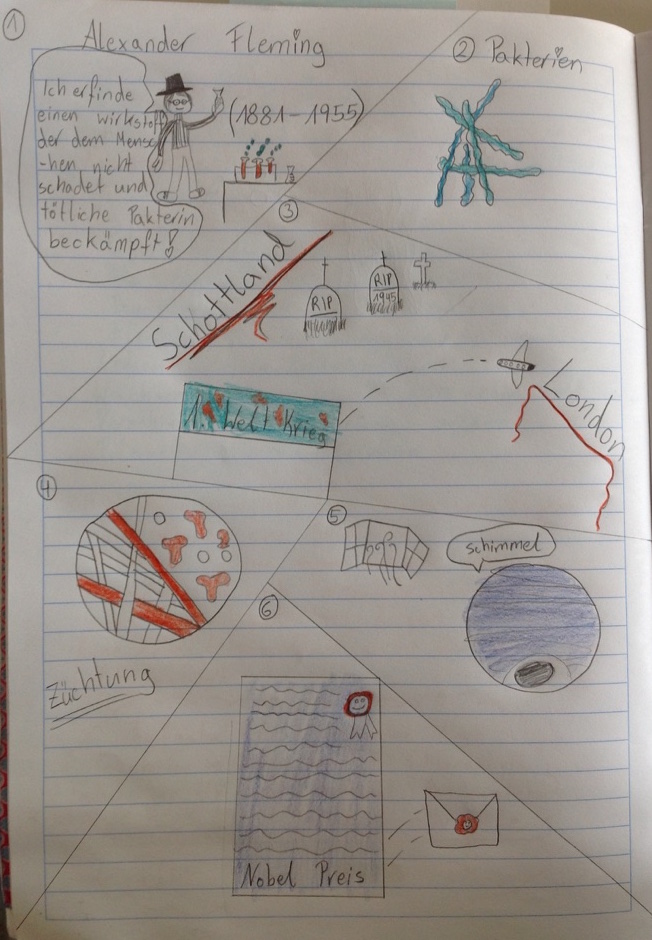 1
Alexander Fleming
Ich erfinde
einen wirkstoff
der dem Mensc
-hen nicht
schadet und
tötliche Pakterin
beckämpft!
(1881-1955)
2 Pakterien
3
Schottland
RIP
RIP
1945
1. Welt Krieg
London
4
Züchtung
5
schimmel
6
Nobel Preis